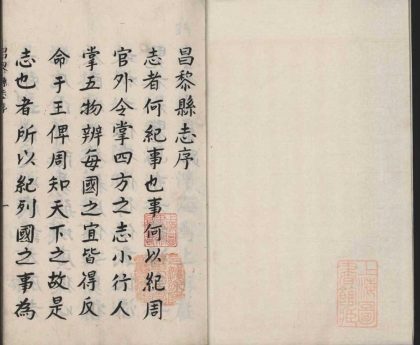 昌黎縣志序
志者何紀事也事何以紀周
官外令掌四方之志小行人
掌五物辨每國之宜皆得反
命于王俾周知天下之故是
志也者所以紀列國之事為
上海圖
書館藏